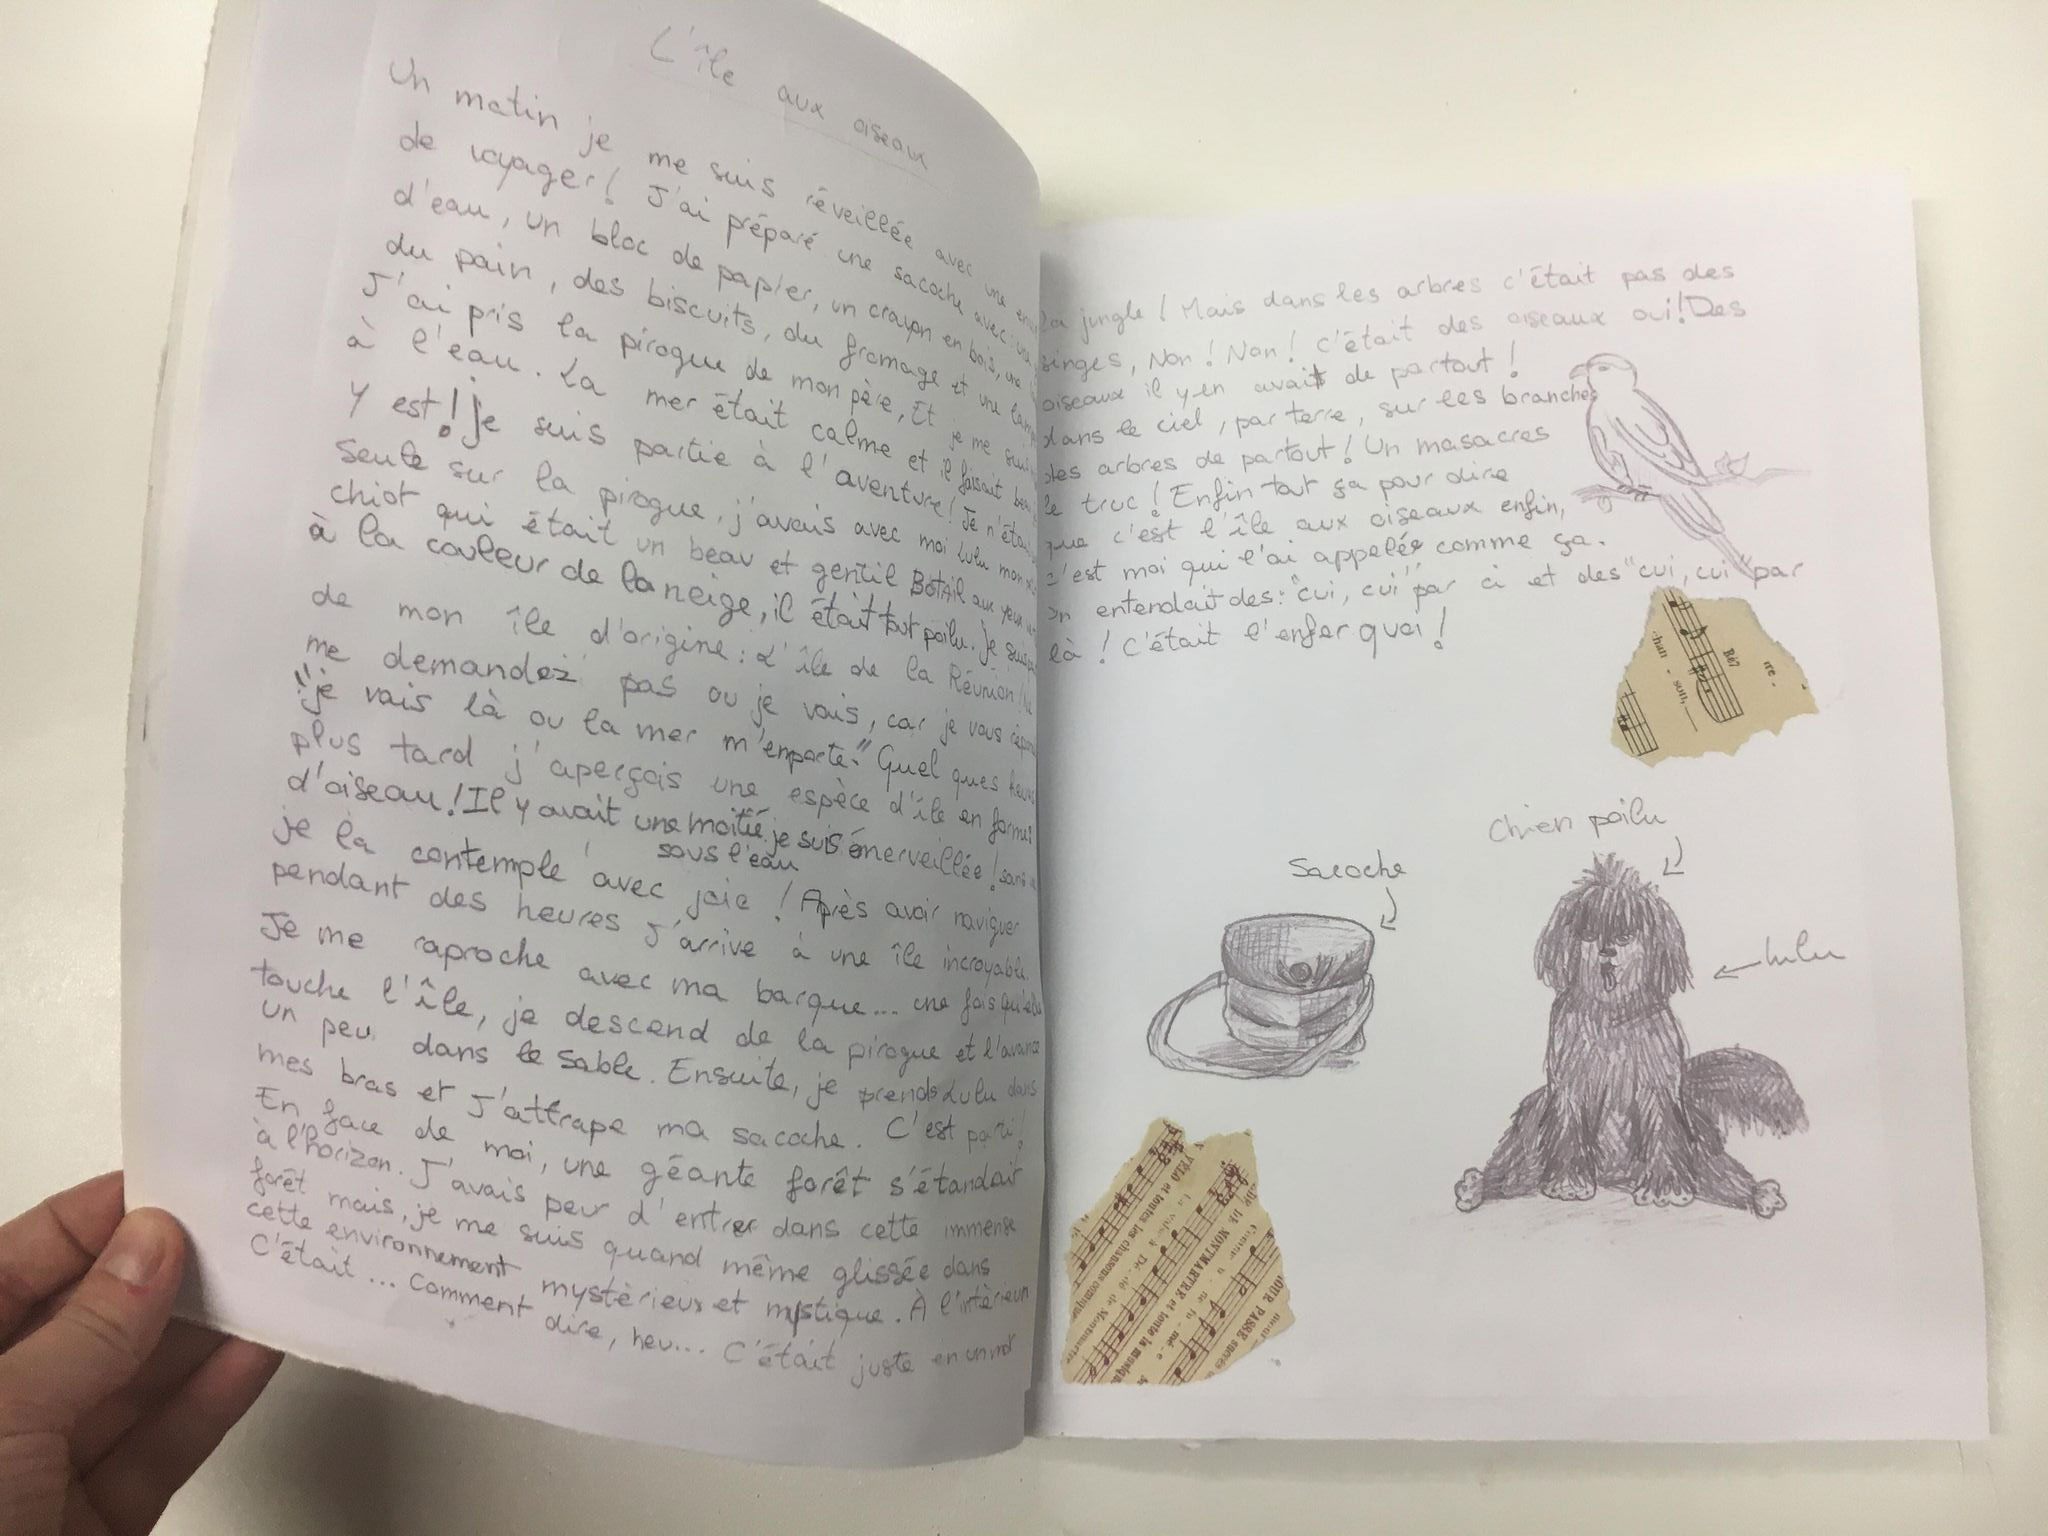 L'île aux oiseaux
Un matin je me suis réveillée avec une
de voyager! J'ai préparé une sacoche avec: une
d'eau, un bloc de papier, un crayon en bois, une
du pain, des biscuits, du fromage et une
J'ai pris la pirogue de mon père, Et je me suis
à l'eau. La mer était calme et il faisait
Y est! Je suis partie à l'aventure! Je
Seule sur la pirogue, j'avais avec moi Lulu mon
chiot qui était un beau et gentil BOTAIL aux yeux
à la couleur de la neige, il était tout poilu. Je
de mon île d'origine: L'île de la Réunion!
me demandez pas ou je vais, car je vous
"je vais là ou la mer m'emporte" Quel ques
plus tard j'aperçois une espèce d'île en
d'oiseau! Il y avait une moitié je suis émerveillée!
sous l'eau
je la contemple avec joie! Après avoir naviguer
pendant des heures J'arrive à une île incroyable.
Je me raproche avec ma barque... une fois qu'elle
touche l'île, je descend de la pirogue et l'avance
un peu dans le sable. Ensuite, je prends Lulu dans
mes bras et J'attrape ma sacoche. C'est parti!
En face de moi, une géante forêt s'étandait
à l'horizon. J'avais peur d'entrer dans cette immense
forêt mais, je me suis quand même glissée dans
cette environnement mystèrieux et mystique. À l'intèrieur
C'était ... Comment dire, heu... C'était juste en un mot
la jungle! Mais dans les arbres c'était pas des
singes, Non! Non! C'était des oiseaux oui! Des
oiseaux il y en avait de partout!
dans le ciel, par terre, sur les branches
des arbres de partout! Un masacres
le truc! Enfin tout ça pour dire
que c'est l'île aux oiseaux enfin,
c'est moi qui l'ai appelée comme ça.
on entendait des: "cui, cui" par ci et des "cui, cui" par
là! C'était l'enfer quoi!
chan - son,
Bb7
re -
Chien poilu
Sacoche
Lulu
et toutes les chansons comiques
DE MONTMARTRE et toute la musique
JOUR PASSE